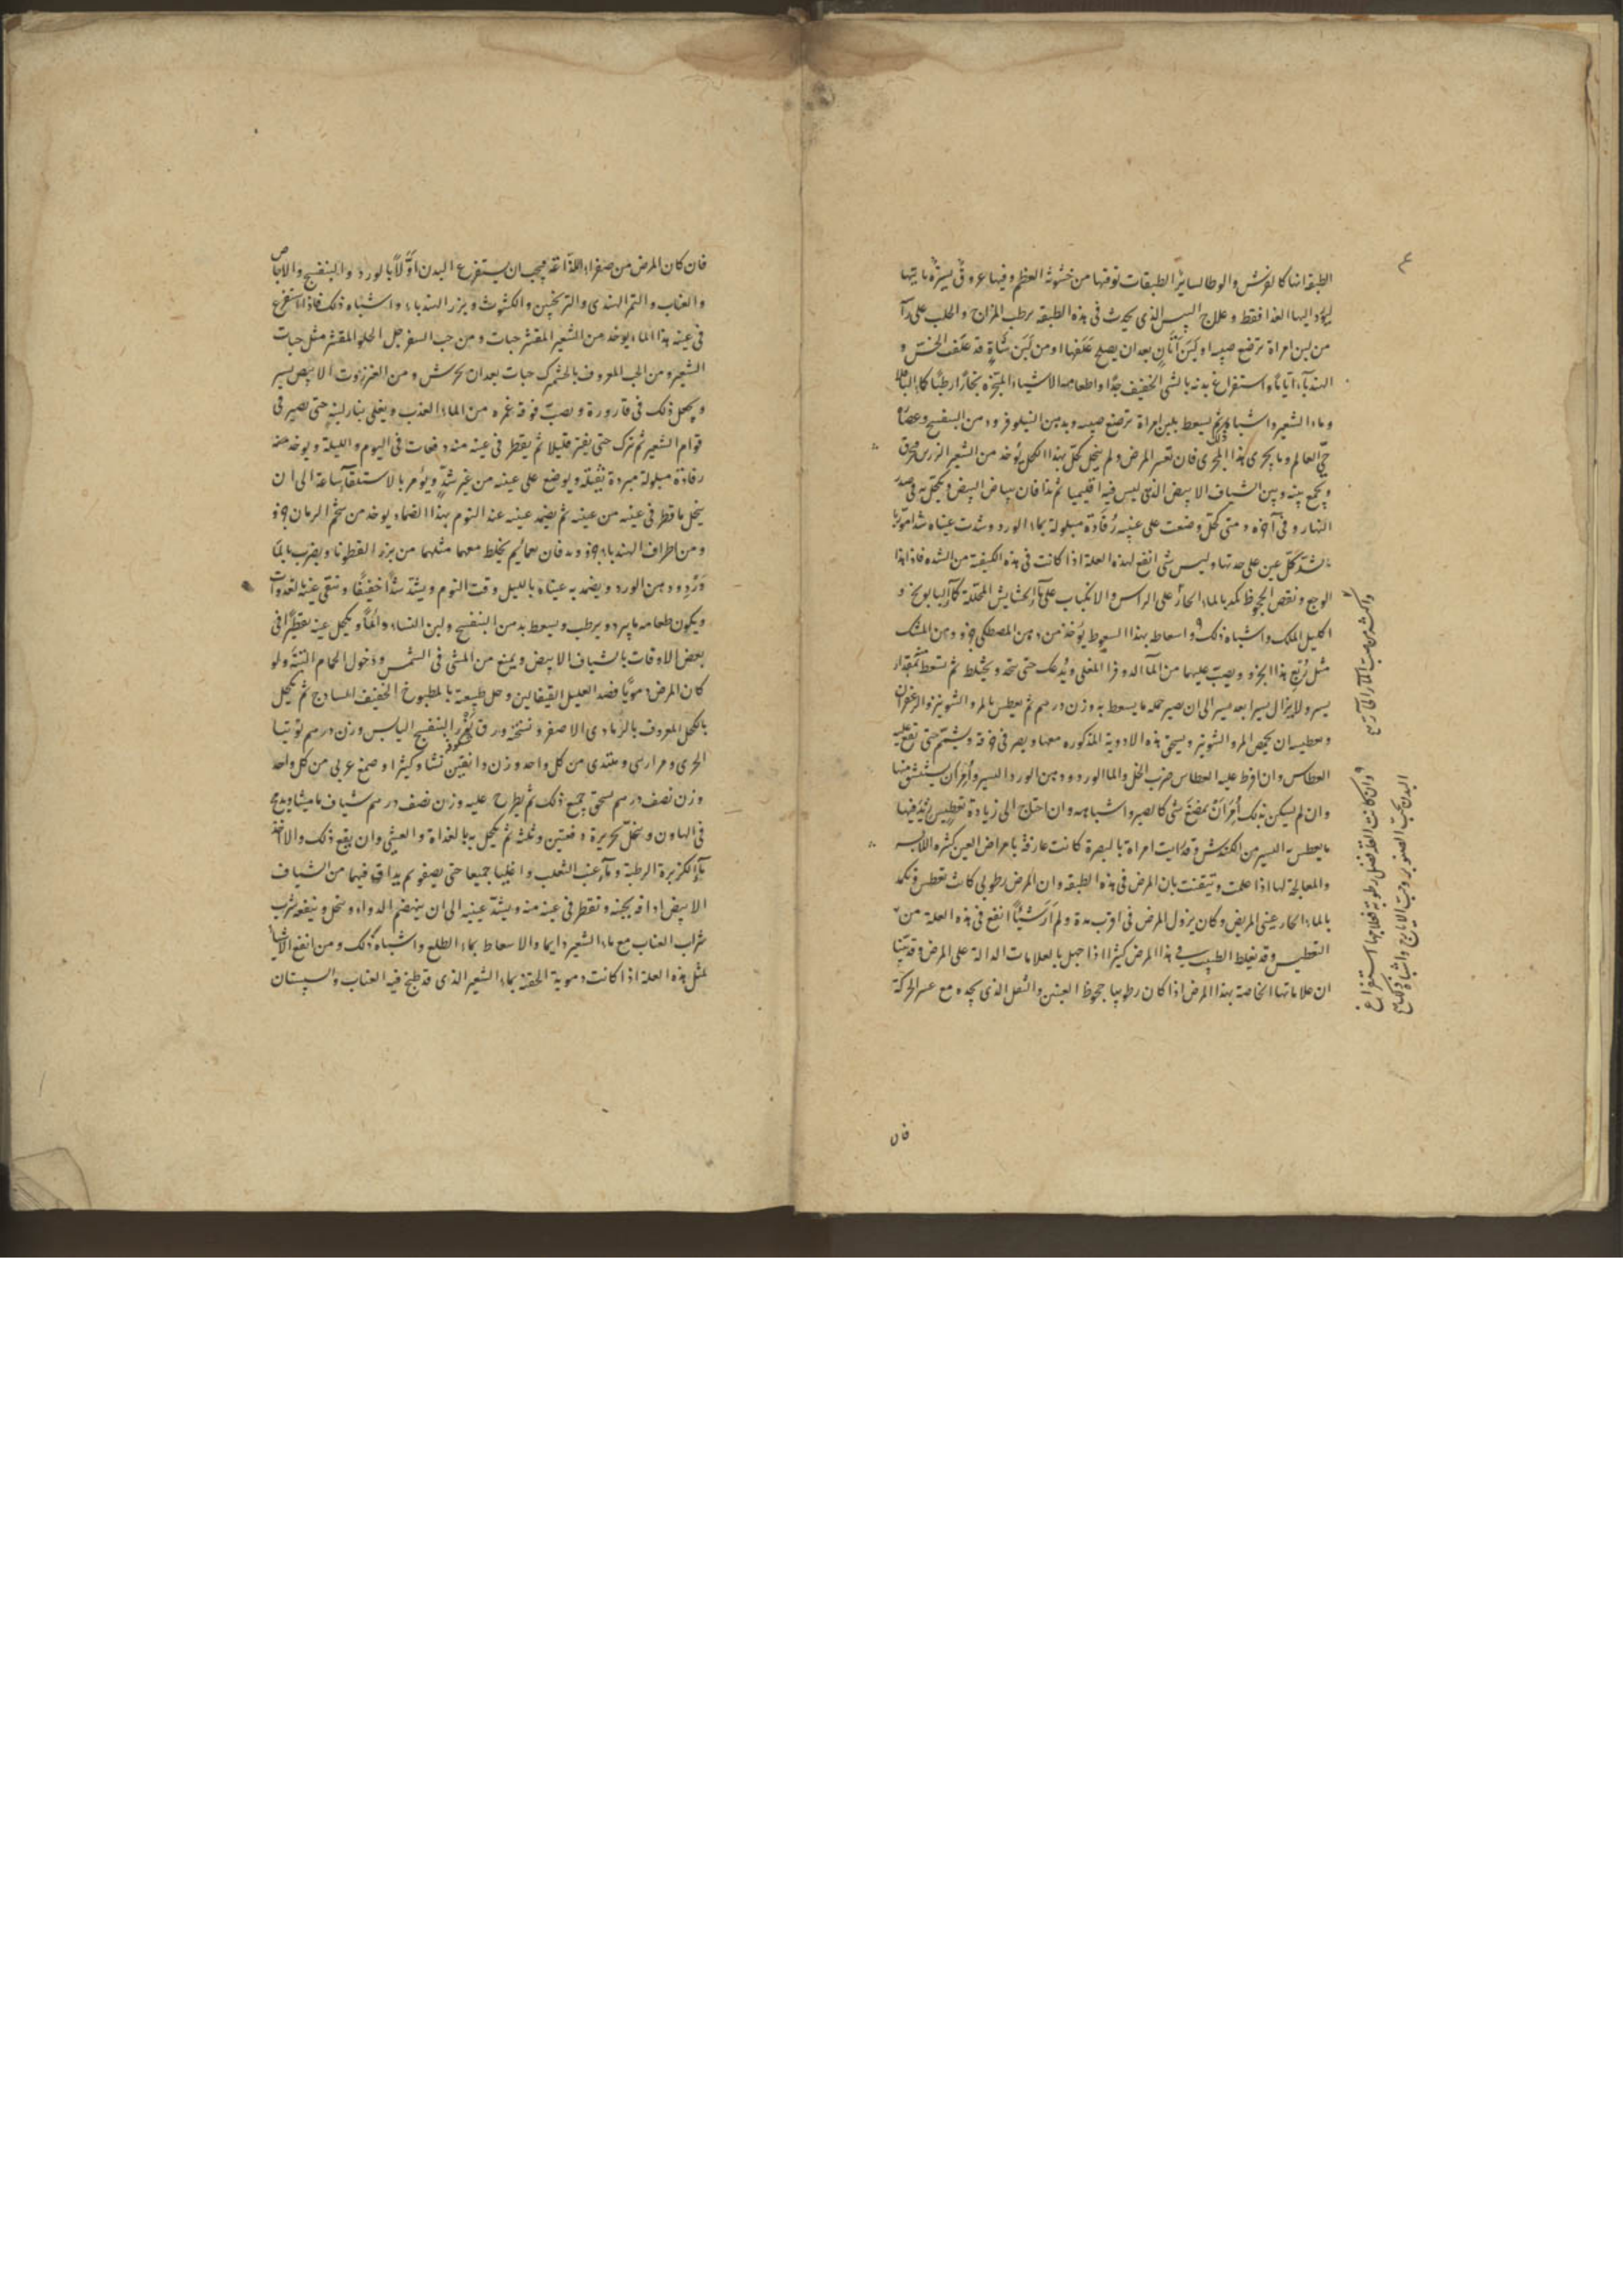 الطبقة انها كالفرش والوطا لساير الطبقات توقيها من خشونة العظم وفيها عروق يسيرة ياتيها
ليؤد اليها الغذا فقط وعلاج اليبس الذي يحدث في هذه الطبقه برطب المزاج والحلب على
من لبن امراة ترضع صبيه او لبن اتان بعد ان يصلح علفها او من لبن شاة قد علفت الخس و
الهندبا اياما واستفراغ بدنه بالشي الخفيف جدا واطعامه الاشياء المبخرة بخارا رطبا كالباقلا
وماء الشعير واشباه ذلك ثم يسعط بلبن امراة ترضع صبيه وبدهن النيلوفر ودهن البنفسج وعصارة
حي العالم وما يجري هذا المجرى فان تعسر المرض ولم ينحل كحل بهذا الكحل يؤخذ من الشعير
ويجمع بينه وبين الشياف الابيض الذي ليس فيه اقليميا ثم بياض البيض ويكحل به في صدر
النهار وفي آخره ومتى كحل وضعت على عينيه رفادة مبلولة بماء الورد وشدت عيناه شدا
يشد كل عين على حدتها وليس شي انفع لهذه العلة اذا كانت في هذه الكيفية من الشده فاذا
الوجع ونقص الجحوظ كمد بالماء الحار على الراس والانكباب على ماء الحشايش المحللة كالبابونج و
اكليل الملك واشباه ذلك واسعاط بهذا السعوط يؤخذ من دهن المصطكي جزو ودهن
مثل ربع هذا الجزو ويصب عليهما من الماء المغلي ويدعك حتى يتحد ويختلط ثم يسعط بمقدار
يسير ولا يزال يسيرا بعد يسير الى ان يصير جمله ما يسعط به وزن درهم ثم يعطس بالمر والشونيز والزعفران
وتعطيسه ان يحمص المر والشونيز ويسحق هذه الادوية المذكوره معها ويصر في خرقة ويشتم حتى
العطاس وان افرط عليه العطاس ضرب الخل والماالورد ودهن الورد اليسير وامر ان يستنشق منها
وان لم يسكن بذلك امر ان يمضغ شي كالصبر واشباهه وان احتاج الى زيادة تعطيس زيد فيها
ما يعطس به اليسير من الكندش وقد رايت امراة بالبصرة كانت عارفة بامراض العين كثيره
والمعالجة لها اذا علمت وتيقنت بان المرض في هذه الطبقه وان المرض رطوبي كانت تعطس وتكمد
بالماء الحار عيني المريض وكان يزول المرض في اقرب مدة ولم ار شيئا انفع في هذه العلة من
التعطيس وقد يغلط الطبيب في هذا المرض كثيرا اذا جهل بالعلامات الدالة على المرض وقد بينا
ان علاماتها الخاصة بهذا المرض اذا كان رطوبيا جحوظ العينين والثقل الذي يجده مع عسر الحركة
وان كانت العلة بفضل رطوبة فعلاجها استفراغ
البدن بحب الصنوبر وحب الايارج واشباه ذلك
فان
فان كان المرض من صفراء لذاعة فيجب ان يستفرغ البدن اولا بالورد والبنفسج والاجاص
والعناب والتمر الهندي والترنجبين والكشوث وبزر الهندباء واشباه ذلك فاذا استفرغ
في عينه هذا الماء يوخذ من الشعير المقشر حبات ومن حب السفرجل الحلو المقشر مثل حبات
الشعير ومن الحب المعروف بالجشمزك حبات بعد ان يحرش ومن العنزروت الابيض يسير
ويجعل ذلك في قارورة ويصب فوقه غمره من الماء العذب ويغلى بنار لينه حتى يصير في
قوام الشعير ثم يترك حتى يفتر قليلا ثم يقطر في عينه منه دفعات في اليوم والليلة ويوخذ منه
رفادة مبلولة مبردة بثقله ويوضع على عينه من غير شد ويؤمر بالاستلقاء ساعة الى ان
ينحل ما قطر في عينه من عينه ثم يضمد عينه عند النوم بهذا الضماد يوخذ من شحم الرمان جزو
ومن اطراف الهندباء جزو يدقان نعما ثم يخلط معهما مثلهما من بزر القطونا ويضرب بماء
ورد ودهن الورد ويضمد به عيناه بالليل وقت النوم ويشد شدا خفيفا وتنقى عينه بالغدوات
ويكون طعامه ما يبرد ويرطب ويسعط بدهن البنفسج ولبن النساء دائما ويكحل عينه تقطيرا في
بعض الاوقات بالشياف الابيض ويمنع من المشي في الشمس ودخول الحمام البتة ولو
كان المرض دمويا فصد العليل القيفالين وحل طبيعته بالمطبوخ الخفيف الساذج ثم يكحل
بالكحل المعروف بالرمادي الاصفر ونسخته ورق زهر البنفسج اليابس وزن درهم توتيا
وزن دانقين نشا وكثيرا وصمغ عربي من كل واحد
وزن نصف درهم يسحق جميع ذلك ثم يطرح عليه وزن نصف درهم شياف ماميثا ويدعج
في الهاون وينخل بحريرة دفعتين وثلث ثم يكحل به بالغداة والعشي وان نفع ذلك والا اخذ
ماء الكزبرة الرطبة وماء عنب الثعلب واغليا جميعا حتى يصفو ثم يداف فيهما من الشياف
الابيض ادافه ثخينه وتقطر في عينه منه ويشد عينيه الى ان ينهضم الدواء وينحل وينفعه شرب
شراب العناب مع ماء الشعير دايما والاسعاط بماء الطلع واشباه ذلك ومن انفع الاشيا
لمثل هذه العلة اذا كانت دموية الحقنه بماء الشعير الذي قد طبخ فيه العناب والسبستان